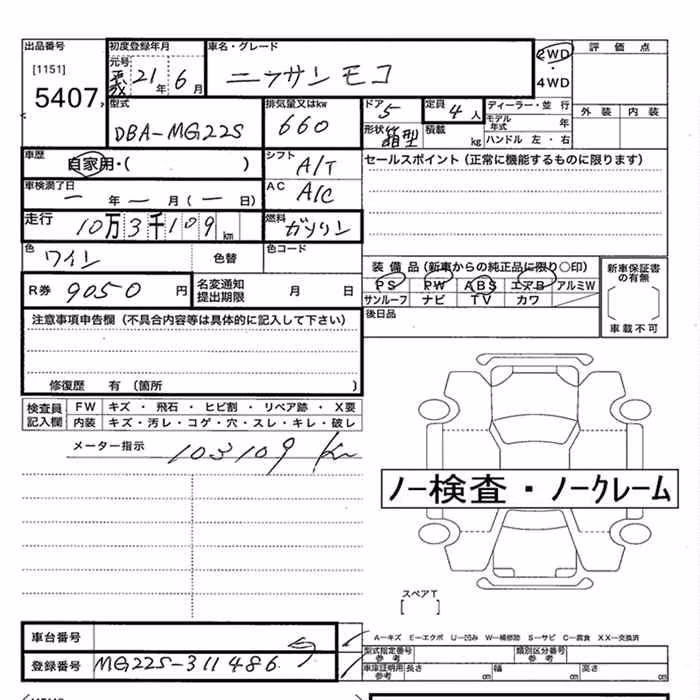 出品番号
[1151]
5407
初度登録年月
元号
平成 21 年 6 月
車名・グレード
ニッサン モコ
2WD
・
4WD
評 価 点
外 装 内 装
型式
DBA-MG22S
排気量又はkw
660
ドア 5
形状 箱型
定員 4 人
積載 kg
ディーラー・並 行
モデル年式 年
ハンドル 左・右
車歴
自家用・( )
シフト A/T
セールスポイント(正常に機能するものに限ります)
車検満了日
ー 年 ー 月 (ー 日)
AC A/C
走行 10万3千109 km
燃料 ガソリン
色 ワイン 色替
色コード
装 備 品 (新車からの純正品に限り○印)
PS PW ABS エアB アルミW
サンルーフ ナビ TV カワ
新車保証書の有無
車載不可
R券 9050 円
名変通知提出期限 月 日
後日品
注意事項申告欄(不具合内容等は具体的に記入して下さい)
修復歴 有 〔箇所 〕
検査員記入欄
FW キズ ・ 飛石 ・ ヒビ割 ・ リペア跡 ・ X要
内装 キズ・汚レ・コゲ・穴・スレ・キレ・破レ
メーター指示 103109 Km
ノー検査・ノークレーム
スペアT
[ ]
車台番号
登録番号 MG22S-311486
A−キズ E−エクボ U−凹み W−補修跡 S−サビ C−腐食 XX−交換済
型式指定番号 参考
類別区分番号 参考
車庫証明用 参考 長さ cm 幅 cm 高さ cm